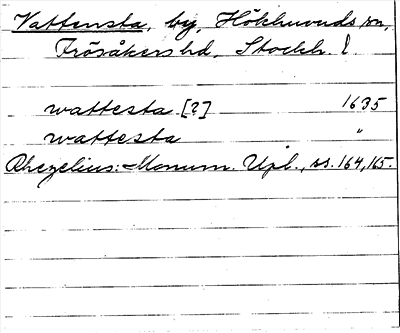 Vattensta, by, Hökhuvuds sn,
Frösåkers hd, Stockh. l.
wattesta [?] 1635
wattesta "
Rhezelius: Monum. Upl., ss. 164, 165.